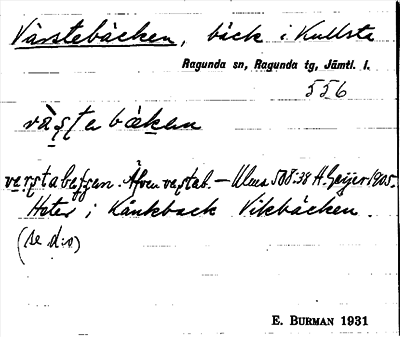 Värstebäcken, bäck i Kullsta
Ragunda sn, Ragunda tg, Jämtl. l.
556
väṣte bäḳen
veṛṣtabeṣṣen. Även veṣtab. – Ulma 508:38 H. Geijer 1905.
Heter i Kånkback Vikbäcken.
(se d:o)
E. BURMAN 1931